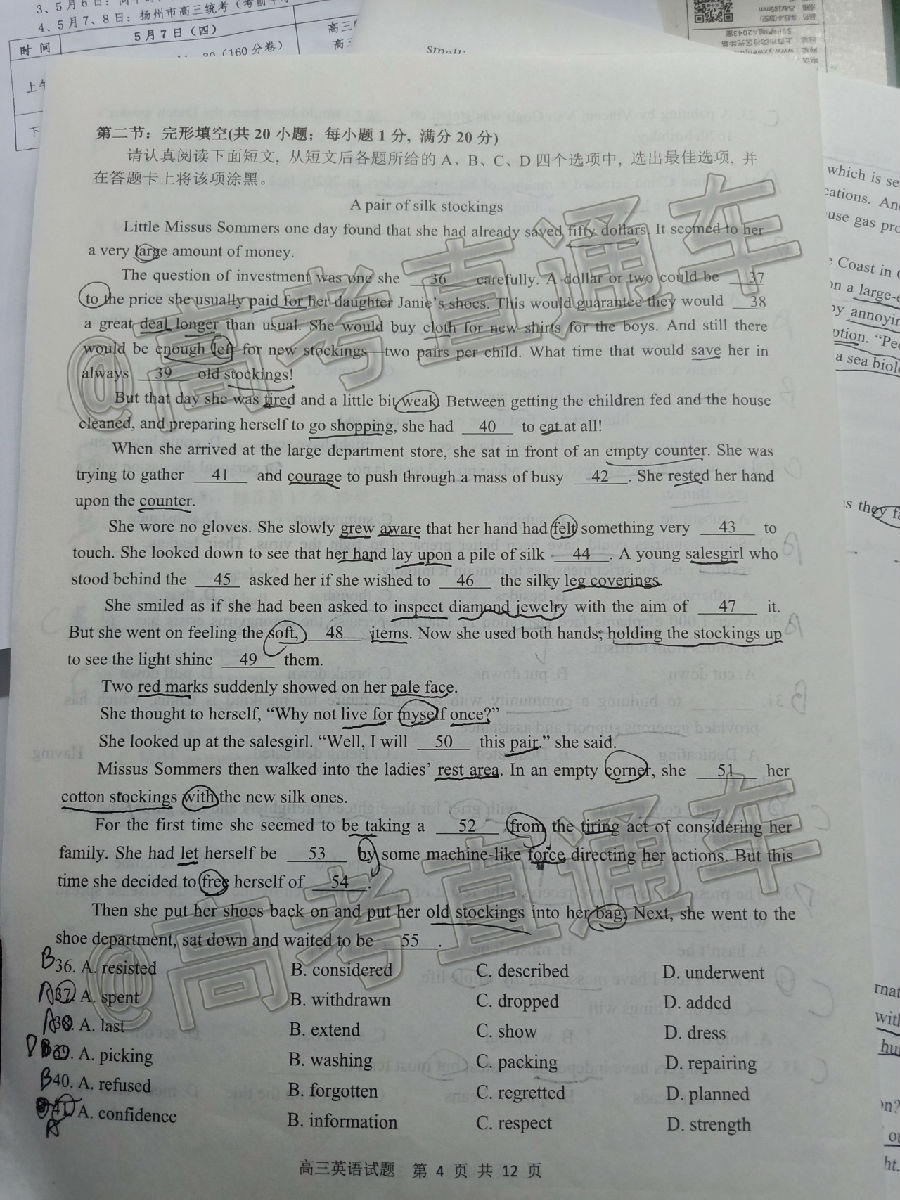 3、5月6日：
4、5月7、8日：扬州市高三统考（考前
时 间
5 月 7 日（四）
(160 分卷)
上午
下
高三
高三
第二节：完形填空(共 20 小题；每小题 1 分, 满分 20 分)
请认真阅读下面短文，从短文后各题所给的 A、B、C、D 四个选项中，选出最佳选项，并
在答题卡上将该项涂黑。
A pair of silk stockings
Little Missus Sommers one day found that she had already saved fifty dollars. It seemed to her
a very large amount of money.
The question of investment was one she 36 carefully. A dollar or two could be 37
to the price she usually paid for her daughter Janie's shoes. This would guarantee they would 38
a great deal longer than usual. She would buy cloth for new shirts for the boys. And still there
would be enough left for new stockings—two pairs per child. What time that would save her in
always 39 old stockings!
But that day she was tired and a little bit weak. Between getting the children fed and the house
cleaned, and preparing herself to go shopping, she had 40 to eat at all!
When she arrived at the large department store, she sat in front of an empty counter. She was
trying to gather 41 and courage to push through a mass of busy 42 . She rested her hand
upon the counter.
She wore no gloves. She slowly grew aware that her hand had felt something very 43 to
touch. She looked down to see that her hand lay upon a pile of silk 44 . A young salesgirl who
stood behind the 45 asked her if she wished to 46 the silky leg coverings.
She smiled as if she had been asked to inspect diamond jewelry with the aim of 47 it.
But she went on feeling the soft, 48 items. Now she used both hands, holding the stockings up
to see the light shine 49 them.
Two red marks suddenly showed on her pale face.
She thought to herself, “Why not live for myself once?”
She looked up at the salesgirl. “Well, I will 50 this pair.” she said.
Missus Sommers then walked into the ladies' rest area. In an empty corner, she 51 her
cotton stockings with the new silk ones.
For the first time she seemed to be taking a 52 from the tiring act of considering her
family. She had let herself be 53 by some machine-like force directing her actions. But this
time she decided to free herself of 54 .
Then she put her shoes back on and put her old stockings into her bag. Next, she went to the
shoe department, sat down and waited to be 55 .
B 36. A. resisted B. considered C. described D. underwent
A 37. A. spent B. withdrawn C. dropped D. added
A 38. A. last B. extend C. show D. dress
D 39. A. picking B. washing C. packing D. repairing
B 40. A. refused B. forgotten C. regretted D. planned
41. A. confidence B. information C. respect D. strength
A
高三英语试题 第 4 页 共 12 页
@高考直通车
@高考直通车
which is se
cations. An
use gas pro
Coast in
on a large-
by annoyin
ption. “Pe
a sea biol
s they f
with
hu
ht.